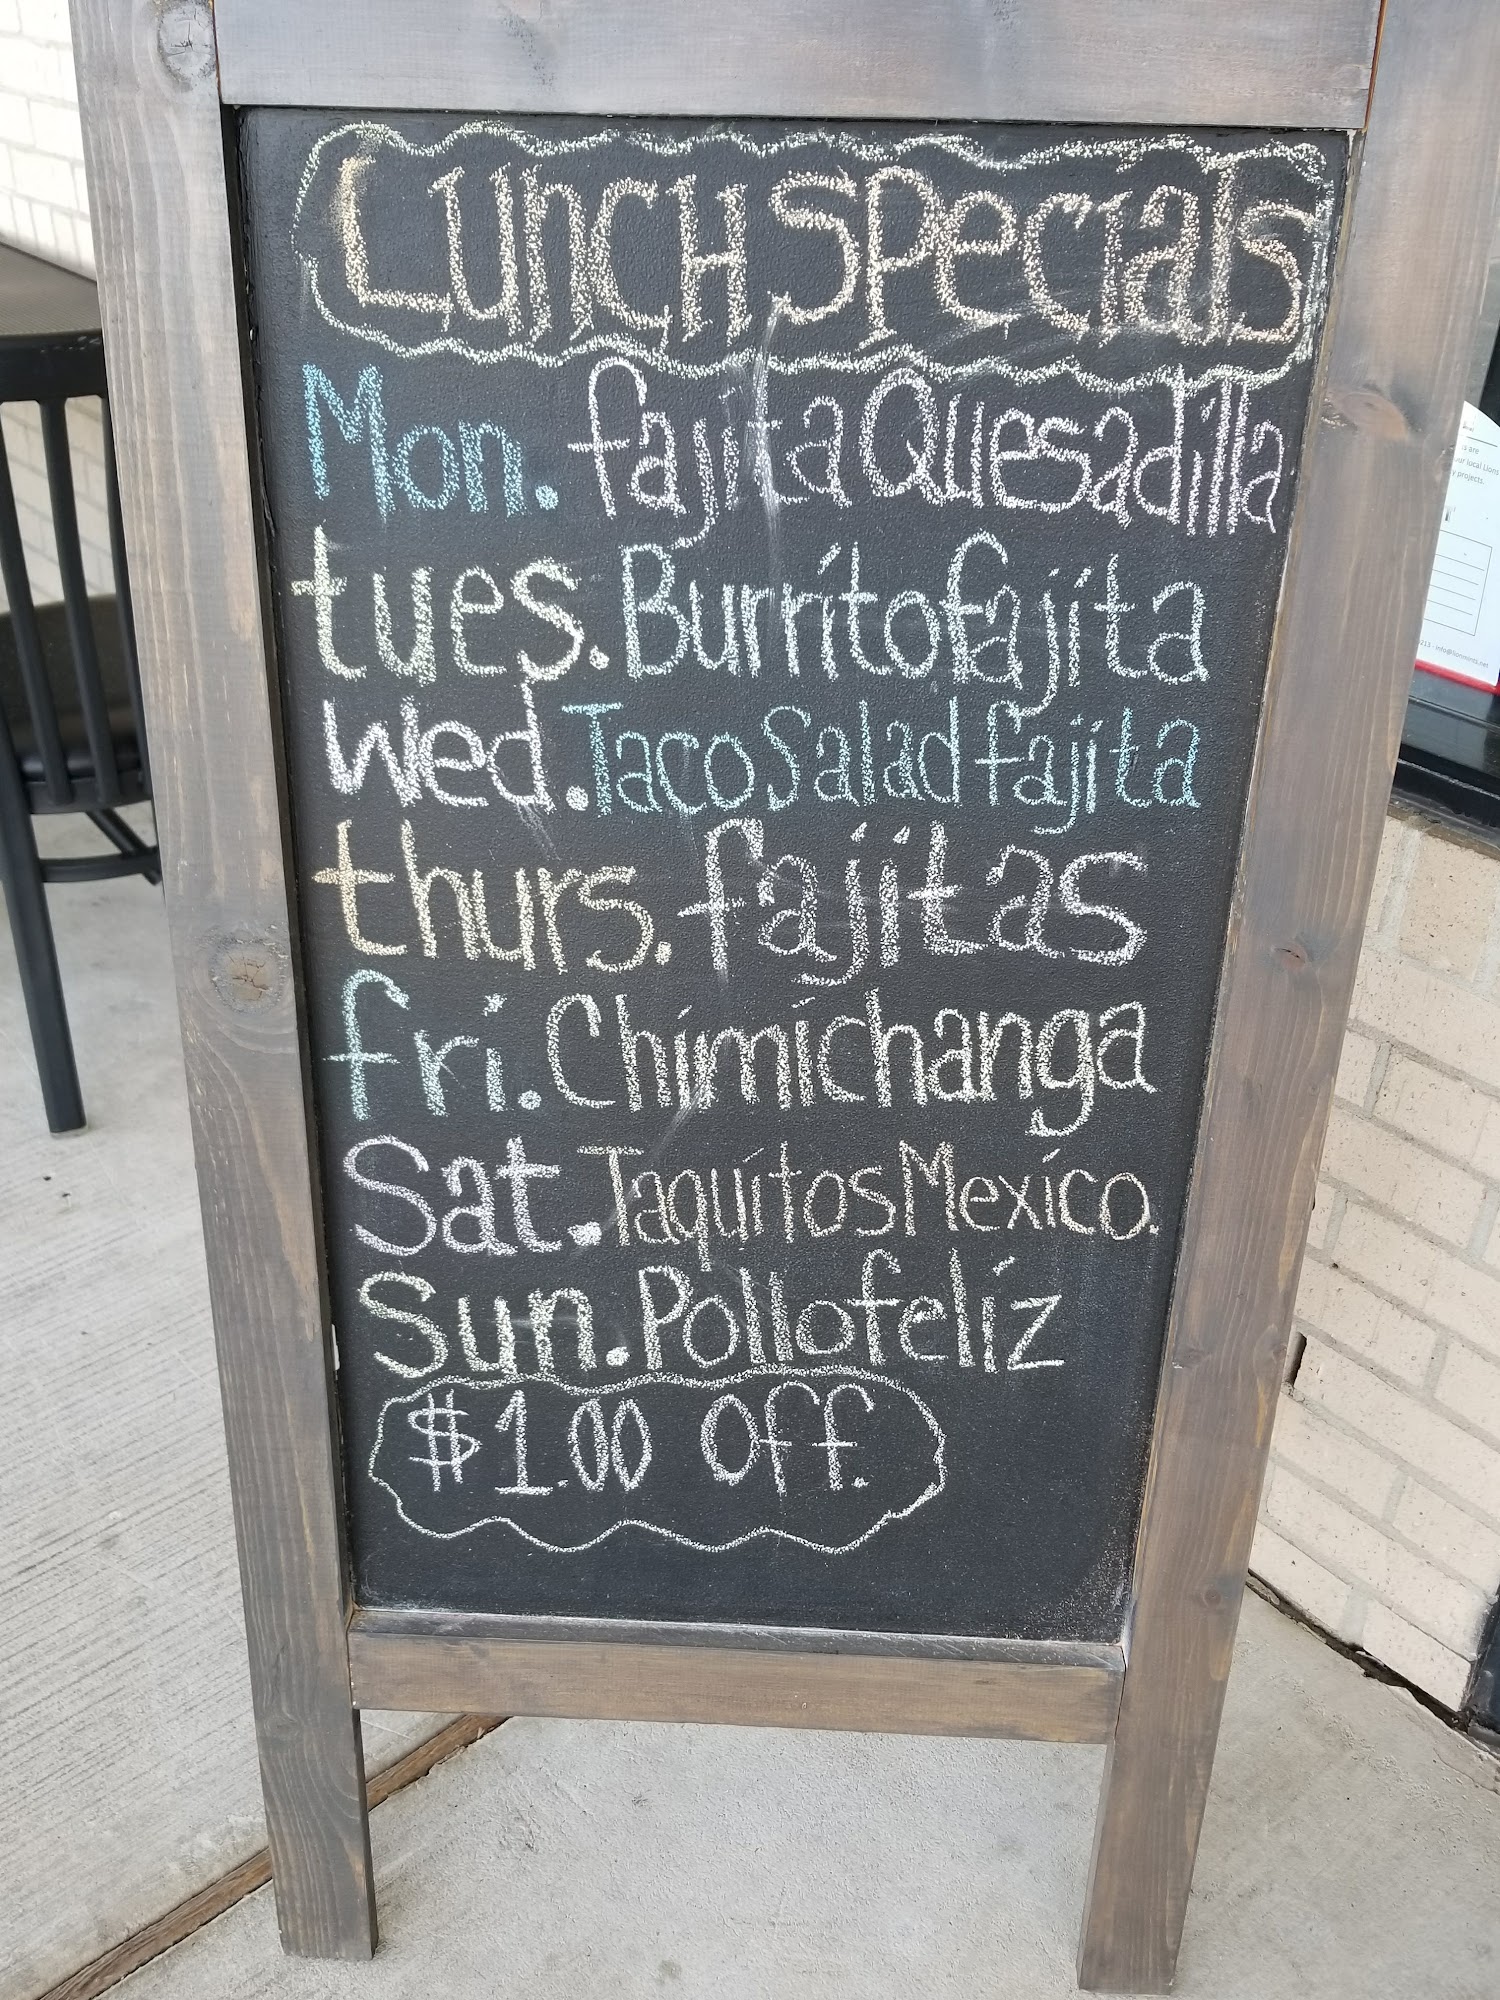 LUncH SPecials
Mon. fajita Quesadilla
tues. Burrito fajita
Wed. Taco Salad fajita
thurs. fajitas
fri. Chimichanga
Sat. Taquitos Mexico.
Sun. Pollo feliz
$1.00 Off.
s are
ur local Lions
y projects.
213 - info@lionmints.net